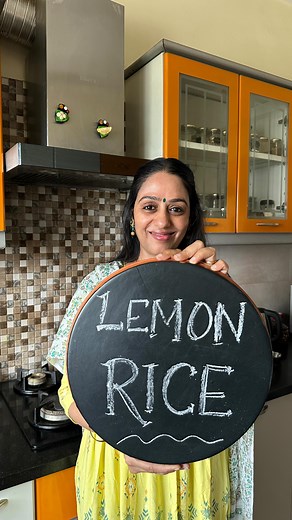 LEMON
RICE